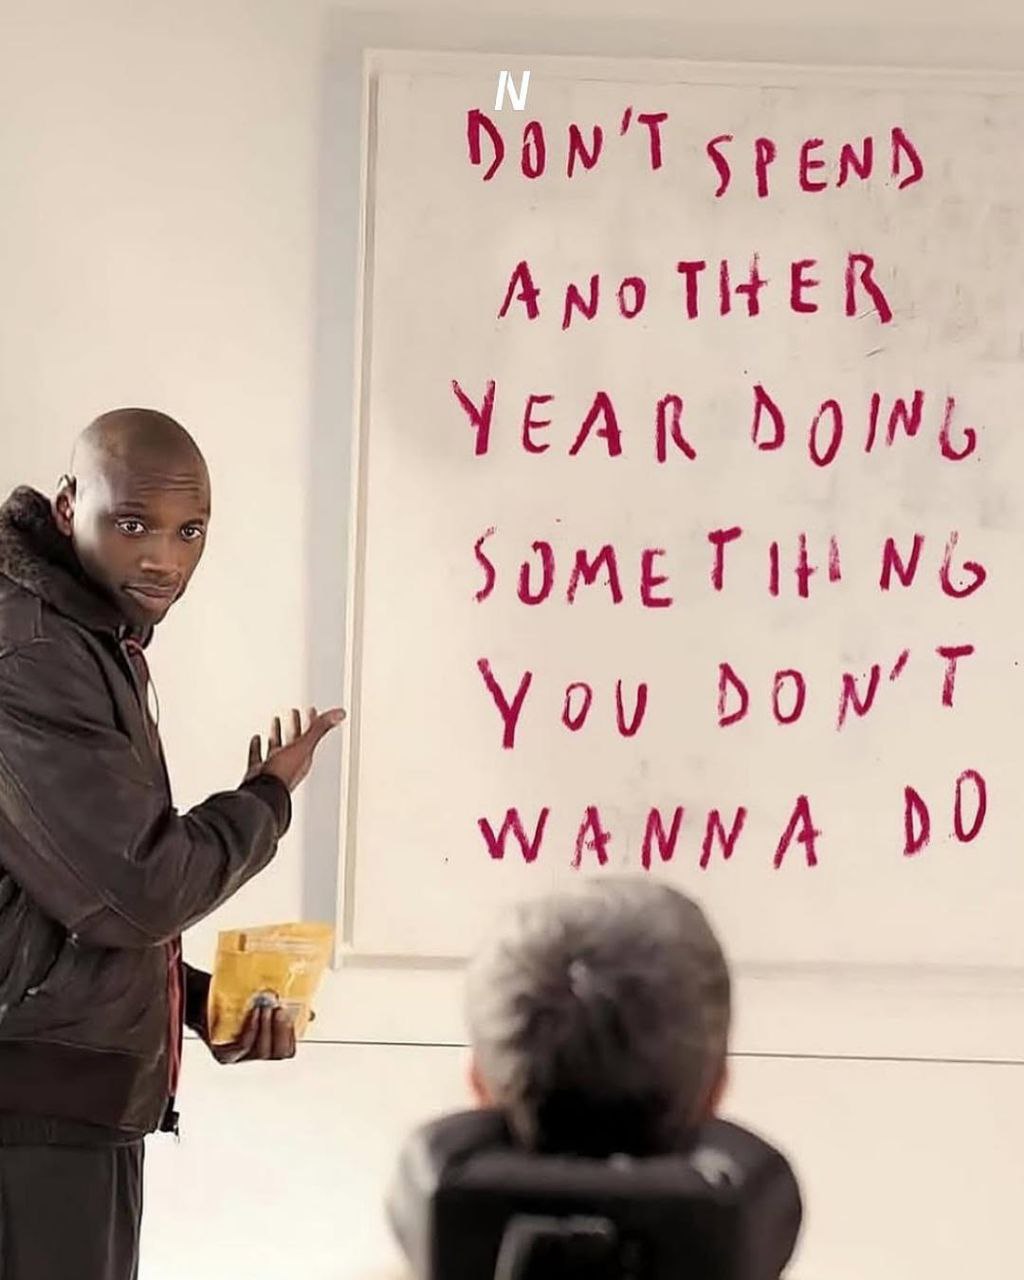 N
DON'T SPEND
ANOTHER
YEAR DOING
SOMETHING
YOU DON'T
WANNA DO